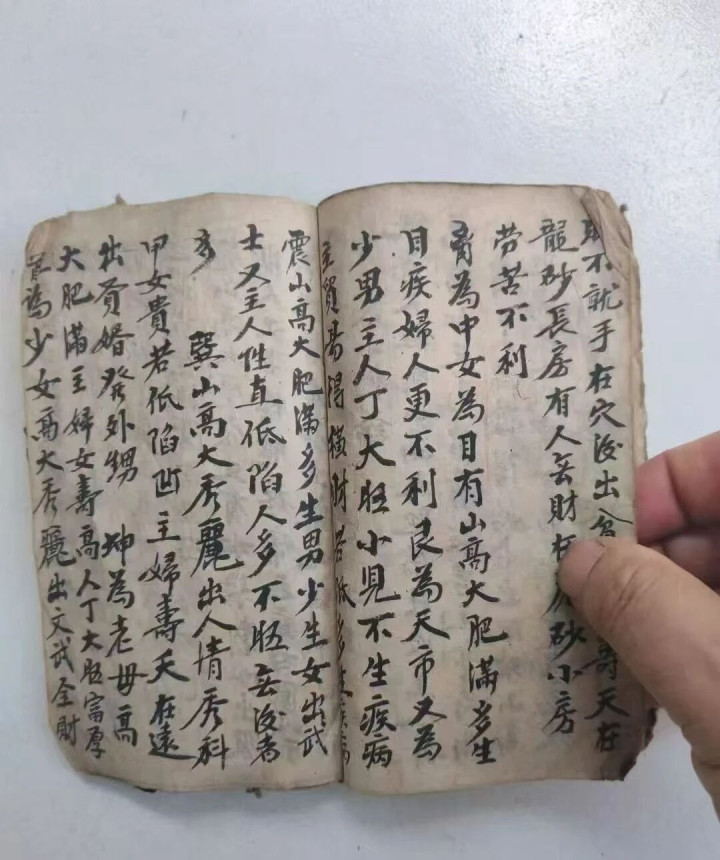 不就手在穴後出
壽夭在
龍砂長房有人無財
砂小房
勞苦不利
為中女為目有山高大肥滿多生
目疾婦人更不利艮為天市又為
少男主人丁大旺小見不生疾病
主貿易得橫財若低多生疾病
震山高大肥滿多生男少生女出武
士又主人性直低陷人多不旺無後者
多 巽山高大秀麗出人清秀科
甲女貴若低陷凹主婦壽夭在遠
出貢婚發外甥 坤為老母高
大肥滿主婦女壽高人丁大旺富厚
為少女高大秀麗出文武全財